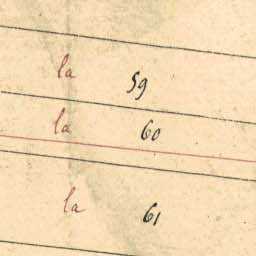 la 59
la 60
la 61